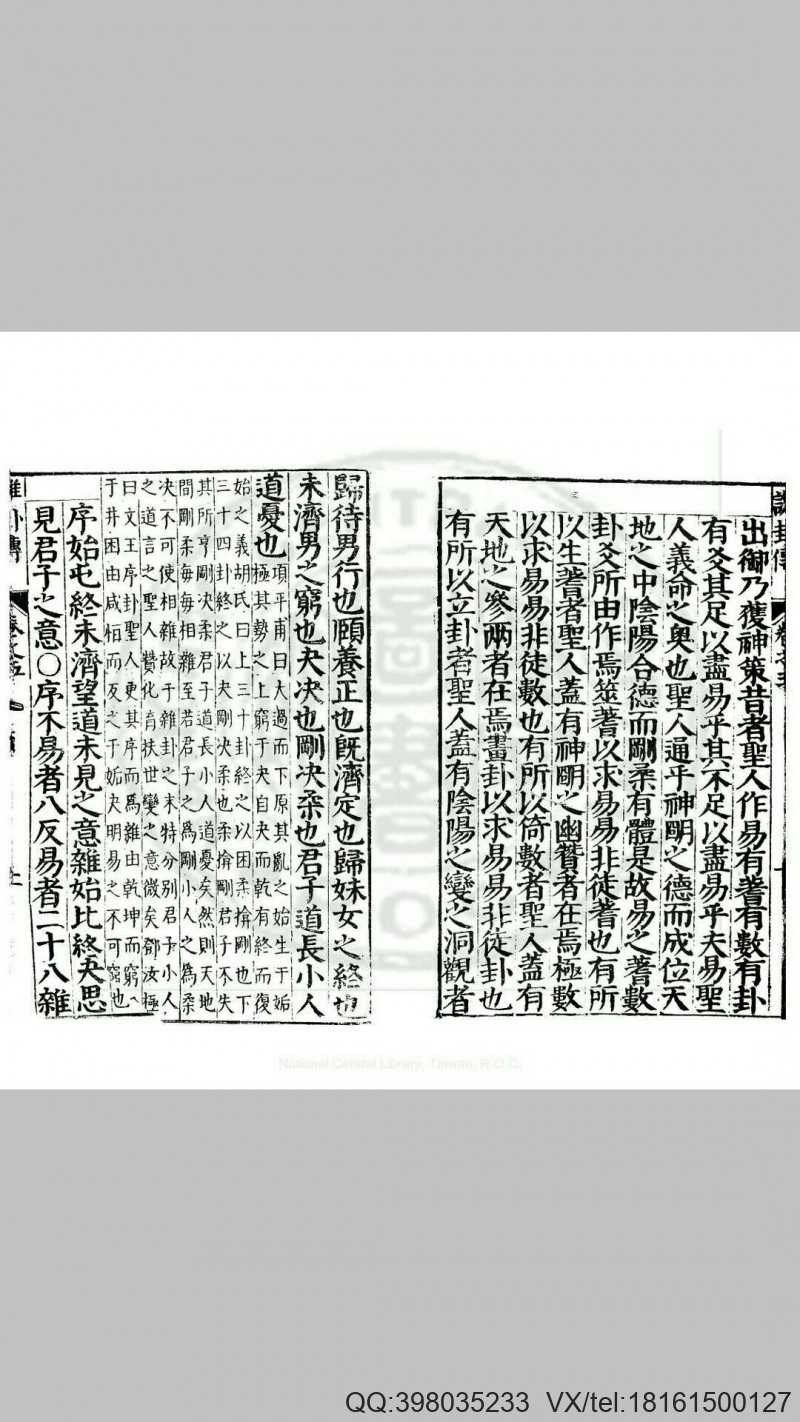 說卦傳
出御乃獲神策昔者聖人作易有蓍有數有卦
有爻其足以盡易乎其不足以盡易乎夫易聖
人義命之奧也聖人通乎神明之德而成位天
地之中陰陽合德而剛柔有體是故易之蓍數
卦爻所由作焉筮蓍以求易易非徒蓍也有所
以生蓍者聖人蓋有神明之幽贊者在焉極數
以求易易非徒數也有所以倚數者聖人蓋有
天地之參兩者在焉畫卦以求易易非徒卦也
有所以立卦者聖人蓋有陰陽之變之洞觀者
歸待男行也頤養正也旣濟定也歸妹女之終也
未濟男之窮也夬决也剛决柔也君子道長小人
道憂也
項平甫曰大過而下原其亂之始生于姤
極其勢之上窮于夬自夬而乾有終而復
始之義胡氏曰上三十卦終之以困柔揜剛也下
三十四卦終之以夬剛决柔也柔揜剛君子不失
其所亨剛决柔君子道長小人道憂矣然則天地
間剛柔每每相雜至若君子之爲剛小人之爲柔
决不可使相雜故于雜卦之末特分别君子小人
之道言之聖人贊化育扶世變之意微矣鄧汝極
曰文王序卦聖人更其序而爲雜由乾坤而窮
于井困由咸恒而反之于姤夬明易之不可窮也
序始屯終未濟望道未見之意雜始比終夬思
見君子之意〇序不易者八反易者二十八雜
雜卦傳
National Central Library, Taiwan, R.O.C.
QQ:398035233 VX/tel:18161500127